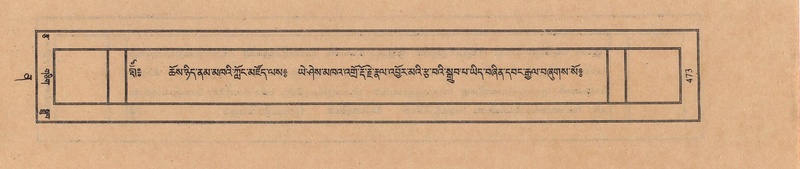 ཧྲཱིཿ ཆོས་ཉིད་ནམ་མཁའི་ཀློང་མཛོད་ལས༔ ཡེ་ཤེས་མཁའ་འགྲོ་རྡོ་རྗེ་རྣལ་འབྱོར་མའི་རྩ་བའི་སྒྲུབ་པ་ཡིད་བཞིན་དབང་རྒྱལ་བཞུགས་སོ༔
473